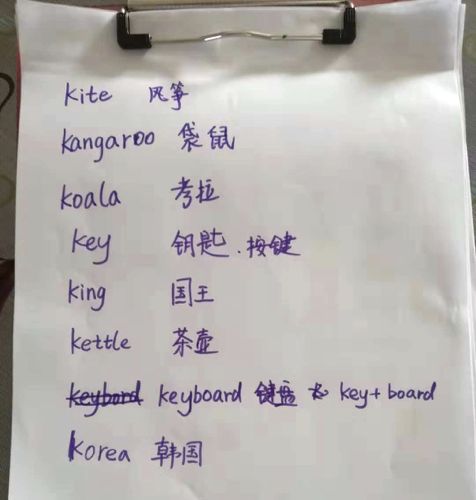 kite 风筝
kangaroo 袋鼠
koala 考拉
key 钥匙、按键
king 国王
kettle 茶壶
keybord keyboard 键盘 key+board
korea 韩国